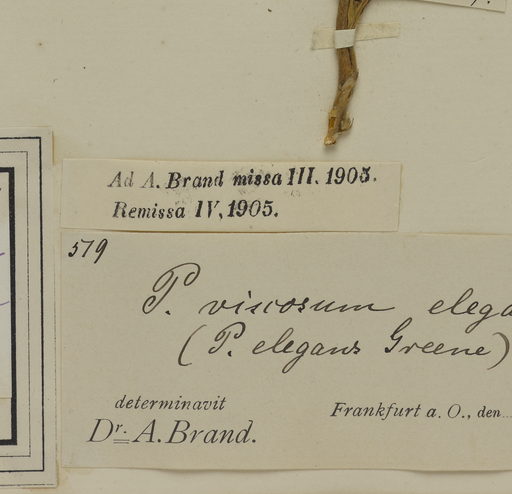 Ad A. Brand missa III. 1905.
Remissa IV, 1905.
579
P. viscosum elega
(P. elegans Greene)
determinavit
Frankfurt a. O., den...
Dr. A. Brand.